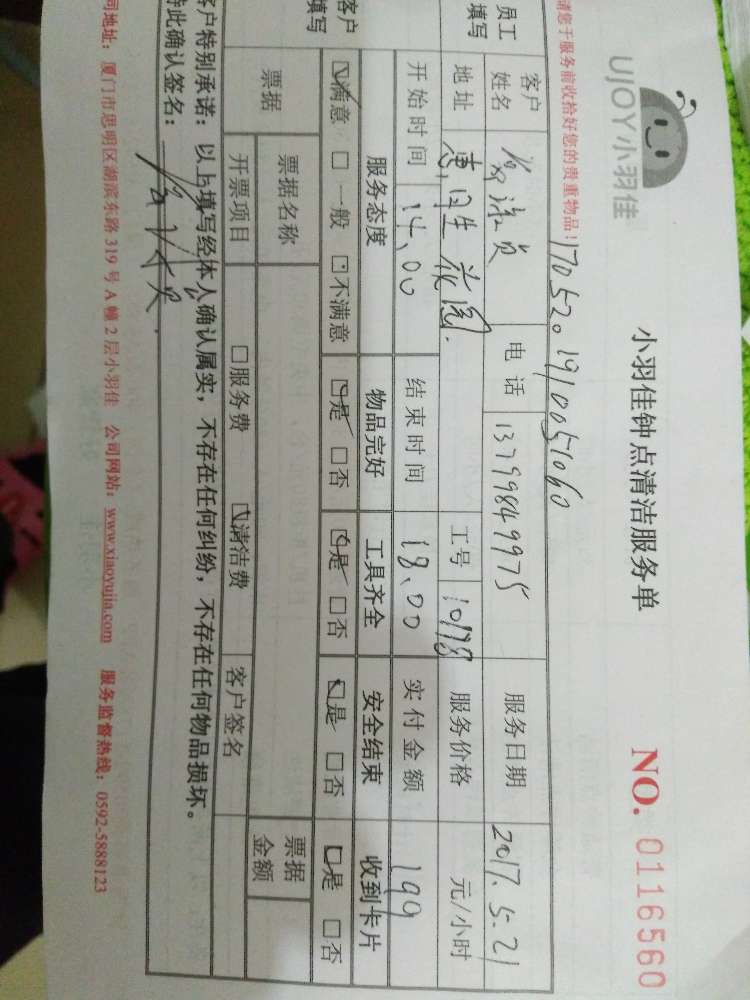 UJOY小羽佳
小羽佳钟点清洁服务单
NO. 0116560
请您于服务前收拾好您的贵重物品!
1705201910051060
员工填写
客户姓名 电话 13799849975 服务日期 2017.5.21
地址 工号 10178 服务价格 元/小时
开始时间 14:00 结束时间 18:00 实付金额 199
客户填写
服务态度 物品完好 工具齐全 安全结束 收到卡片
满意 一般 不满意 是 否 是 否 是 否 是 否
票据 票据名称 票据金额
开票项目 服务费 清洁费 客户签名
客户特别承诺:以上填写经本人确认属实,不存在任何纠纷,不存在任何物品损坏。
特此确认签名:
司地址:厦门市思明区湖滨东路 319 号 A 幢 2 层小羽佳 公司网站:www.xiaoyujia.com 服务监督热线:0592-5888123